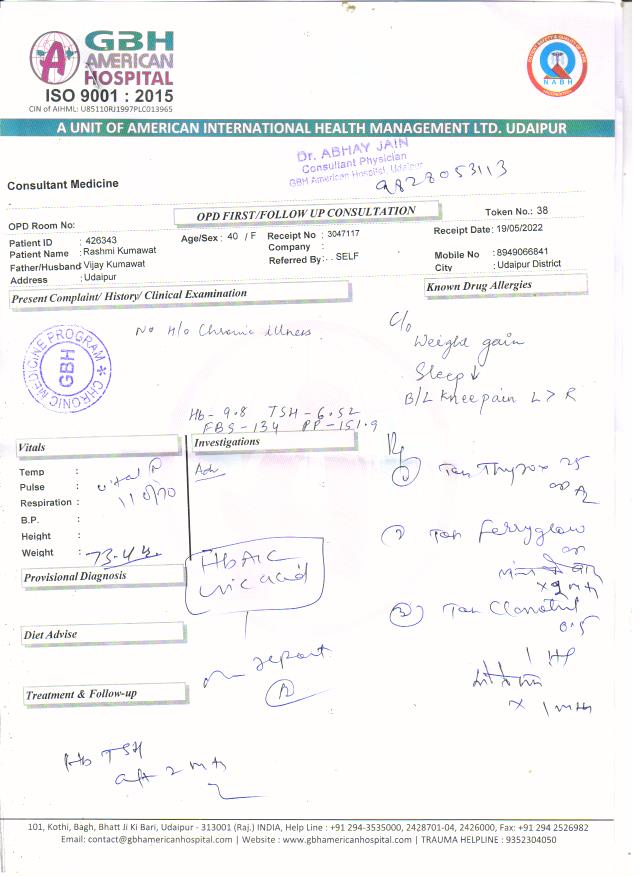 GBH
AMERICAN
HOSPITAL
ISO 9001 : 2015
CIN of AIHML: U85110RJ1997PLC013965
NABH
A UNIT OF AMERICAN INTERNATIONAL HEALTH MANAGEMENT LTD. UDAIPUR
Dr. ABHAY JAIN
Consultant Physician
GBH American Hospital, Udaipur
9828053113
Consultant Medicine
OPD FIRST/FOLLOW UP CONSULTATION
Token No.: 38
OPD Room No:
Patient ID : 426343
Age/Sex : 40 / F
Receipt No : 3047117
Receipt Date: 19/05/2022
Patient Name : Rashmi Kumawat
Company :
Father/Husband Vijay Kumawat
Referred By: - SELF
Mobile No : 8949066841
Address : Udaipur
City : Udaipur District
Present Complaint/ History/ Clinical Examination
Known Drug Allergies
No H/o Chronic illness
C/o
Weight gain
Sleep ↓
B/L Knee pain L > R
CHRONIC MEDICINE PROGRAM
GBH
Hb - 9.8 TSH - 6.52
FBS - 134 PP - 151.9
Vitals
Investigations
Adv
Temp :
Pulse :
Respiration :
B.P. :
Height :
Weight : 73.4
110/70
HbA1C
uric acid
Rx
① Tab Thyrox 25
② Tab Ferryglow
③ Tab Clonotril
0.5
Provisional Diagnosis
Diet Advise
report
Treatment & Follow-up
Hb TSH
aft 2 mth
101, Kothi, Bagh, Bhatt Ji Ki Bari, Udaipur - 313001 (Raj.) INDIA, Help Line : +91 294-3535000, 2428701-04, 2426000, Fax: +91 294 2526982
Email: contact@gbhamericanhospital.com | Website : www.gbhamericanhospital.com | TRAUMA HELPLINE : 9352304050